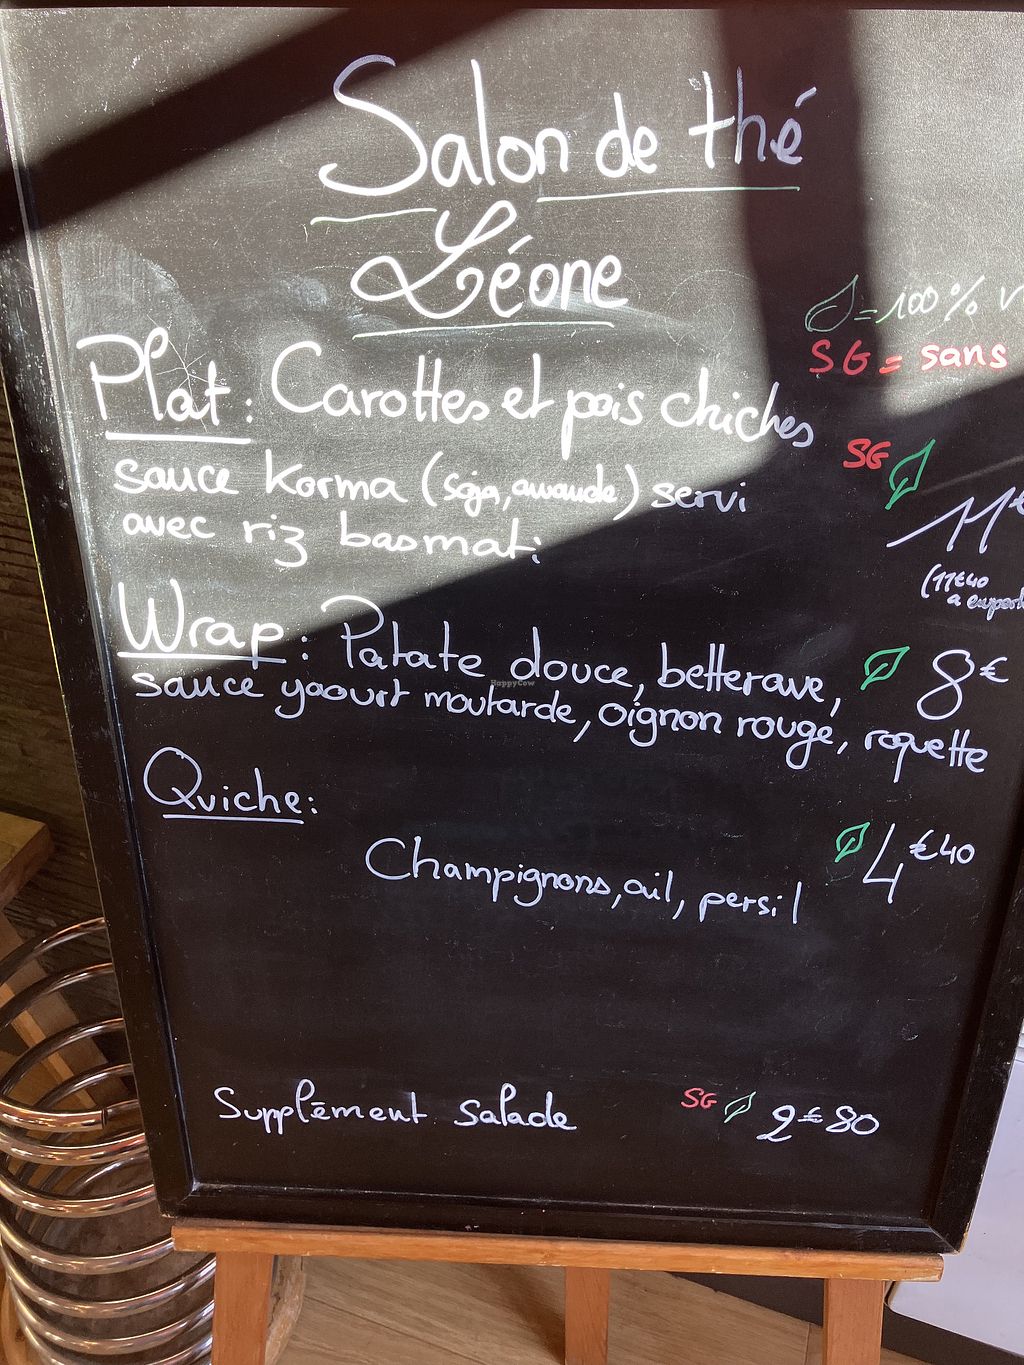 Salon de thé
Léone
= 100% V
SG = sans
Plat: Carottes et pois chiches
sauce Korma (soja, amande) servi
avec riz basmati
SG
11€
(11€40
a emport
Wrap: Patate douce, betterave,
8€
sauce yaourt moutarde, oignon rouge, roquette
HappyCow
Quiche:
4€40
Champignons, ail, persil
Supplément salade SG 2€80